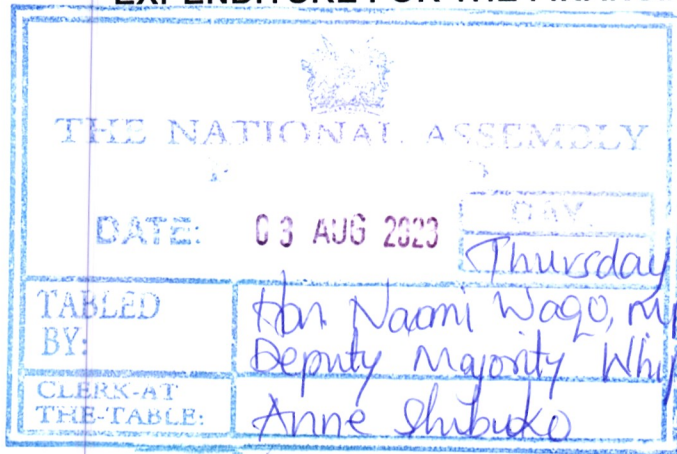 EXPENDITURE FOR THE
THE NATIONAL ASSEMBLY
DATE: 03 AUG 2023
DAY
Thursday
TABLED BY: Hon. Naomi Waqo, MP
Deputy Majority Whip
CLERK-AT THE-TABLE: Anne Shibuko